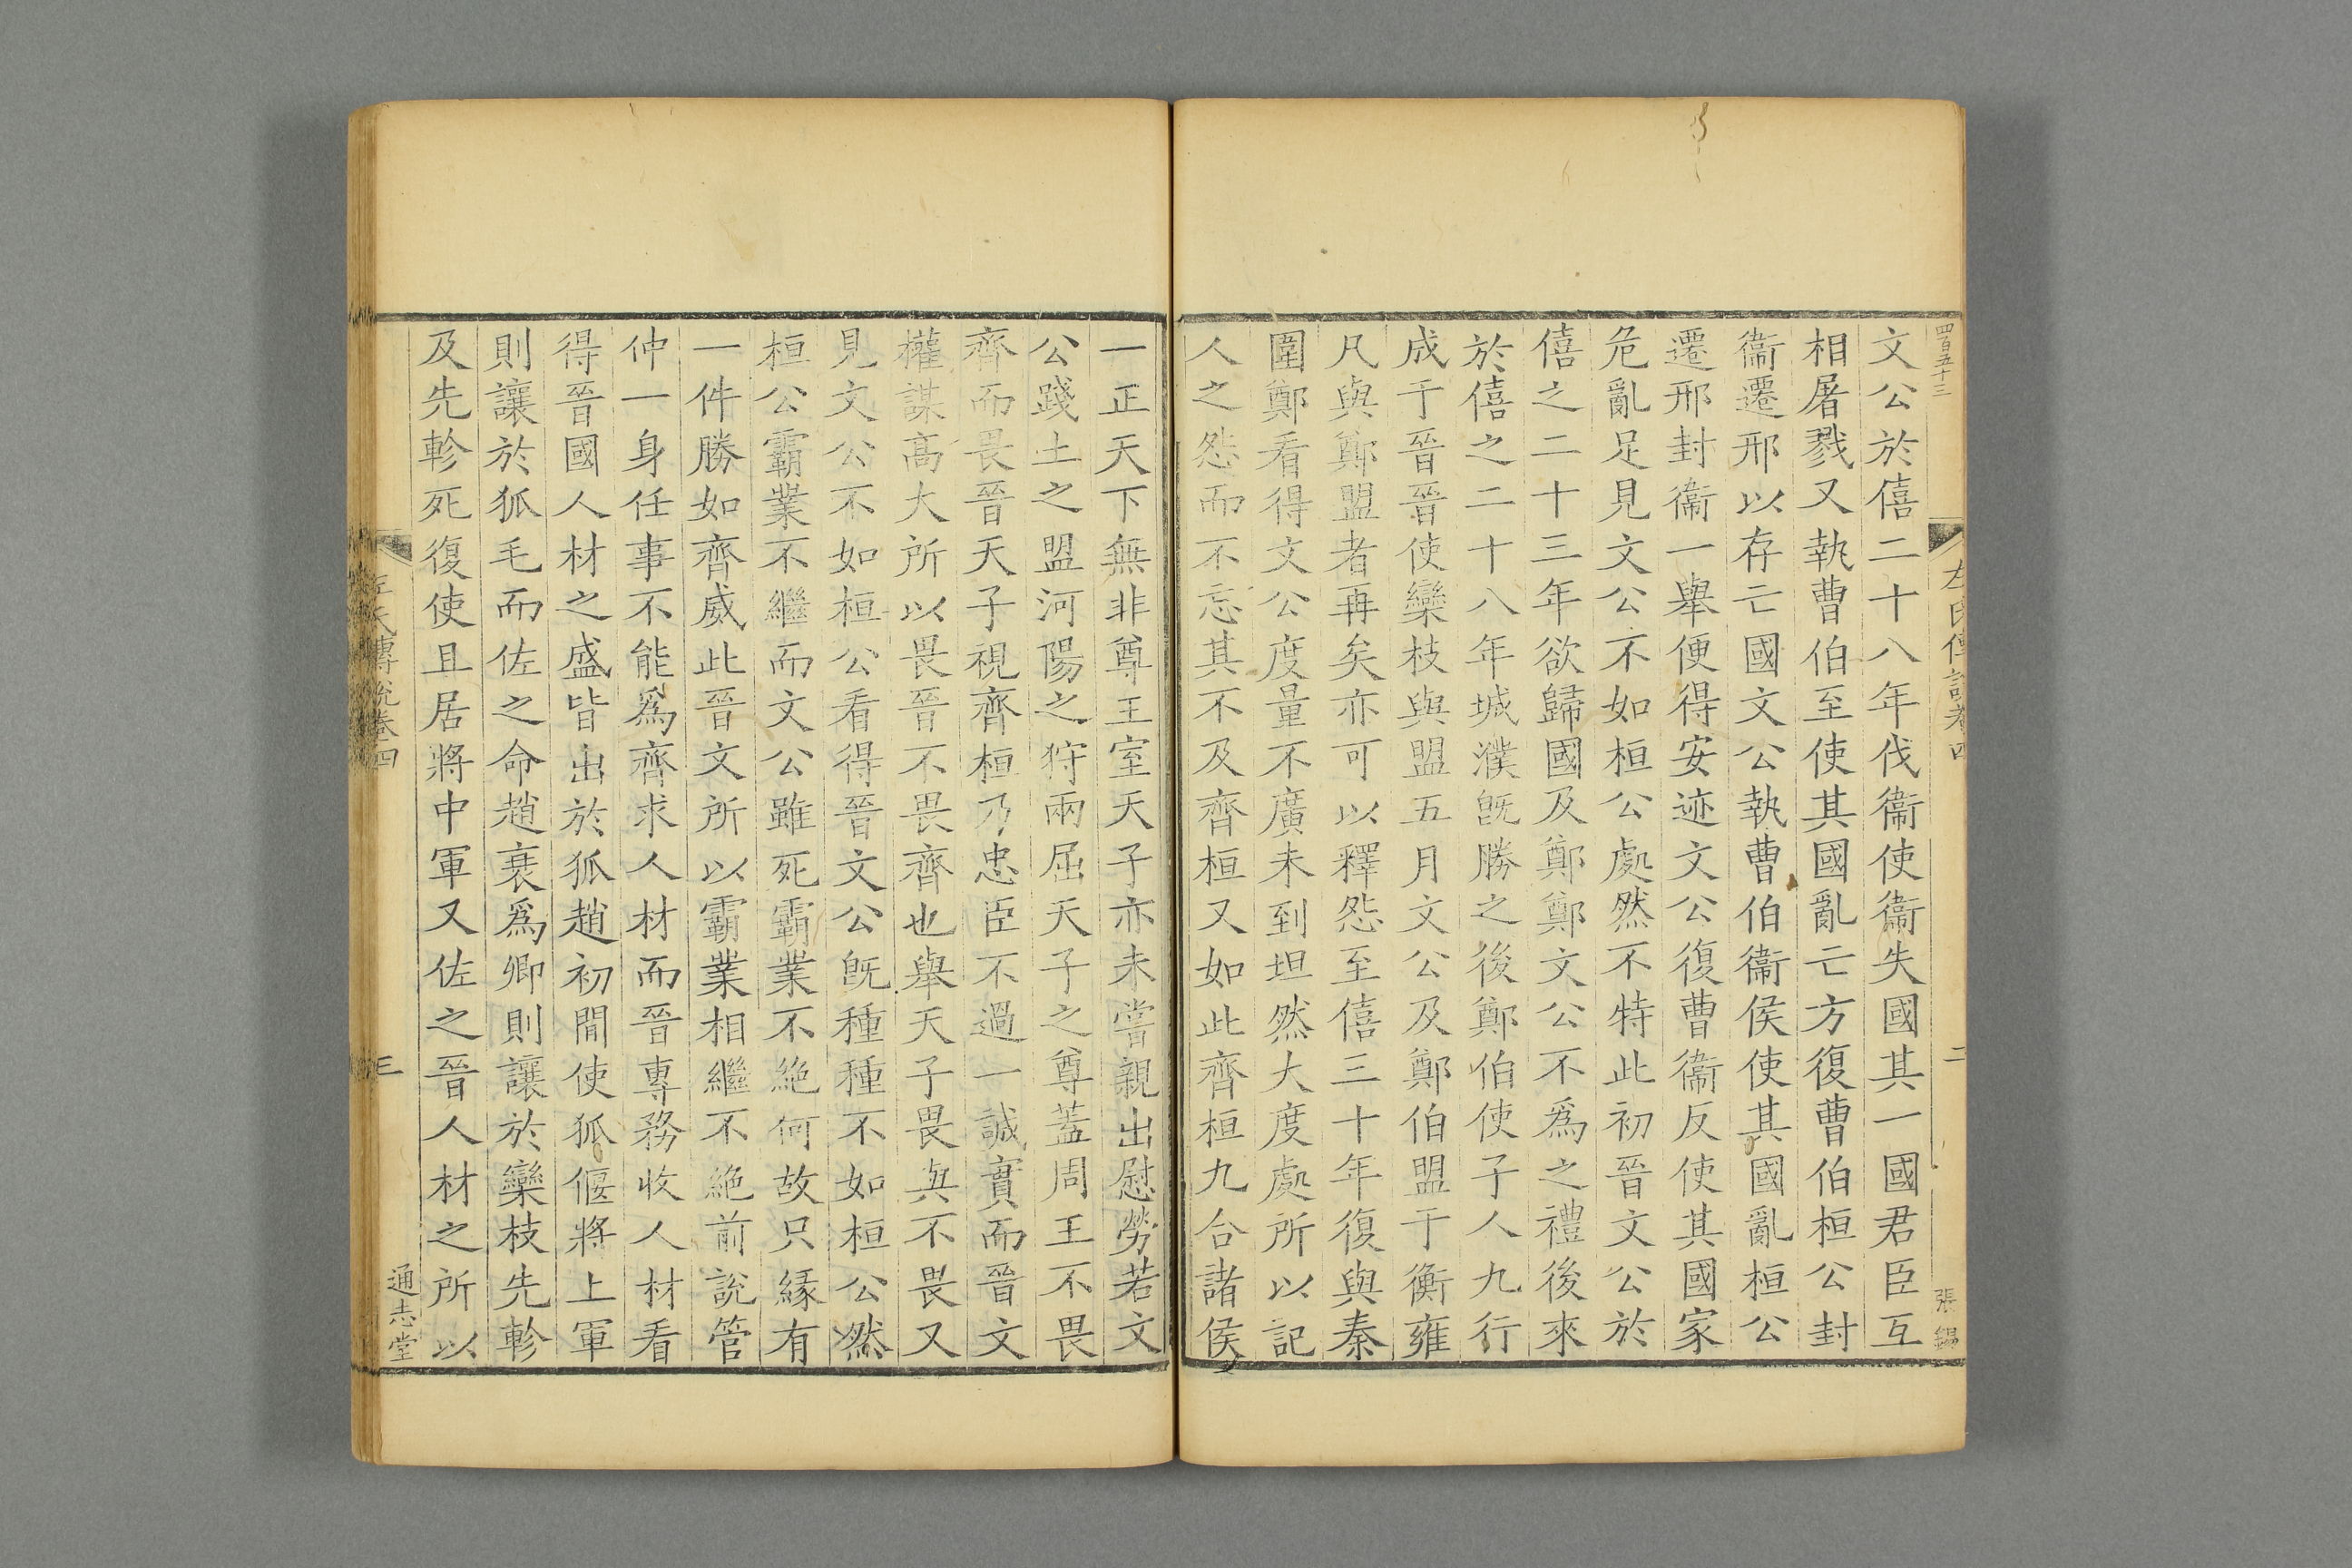 四百五十三
左氏傳說卷四
二
張錫
文公於僖二十八年伐衞使衞失國其一國君臣互
相屠戮又執曹伯至使其國亂亡方復曹伯桓公封
衞遷邢以存亡國文公執曹伯衞侯使其國亂桓公
遷邢封衞一舉便得安迹文公復曹衞反使其國家
危亂足見文公不如桓公處然不特此初晉文公於
僖之二十三年欲歸國及鄭鄭文公不爲之禮後來
於僖之二十八年城濮旣勝之後鄭伯使子人九行
成于晉晉使欒枝與盟五月文公及鄭伯盟于衡雍
凡與鄭盟者再矣亦可以釋怨至僖三十年復與秦
圍鄭看得文公度量不廣未到坦然大度處所以記
人之怨而不忘其不及齊桓又如此齊桓九合諸侯
一正天下無非尊王室天子亦未嘗親出慰勞若文
公踐土之盟河陽之狩兩屈天子之尊蓋周王不畏
齊而畏晉天子視齊桓乃忠臣不過一誠實而晉文
權謀高大所以畏晉不畏齊也舉天子畏與不畏又
見文公不如桓公看得晉文公旣種種不如桓公然
桓公霸業不繼而文公雖死霸業不絶何故只緣有
一件勝如齊威此晉文所以霸業相繼不絶前說管
仲一身任事不能爲齊求人材而晉專務收人材看
得晉國人材之盛皆出於狐趙初間使狐偃將上軍
則讓於狐毛而佐之命趙衰爲卿則讓於欒枝先軫
及先軫死復使且居將中軍又佐之晉人材之所以
左氏傳說卷四
三
通志堂